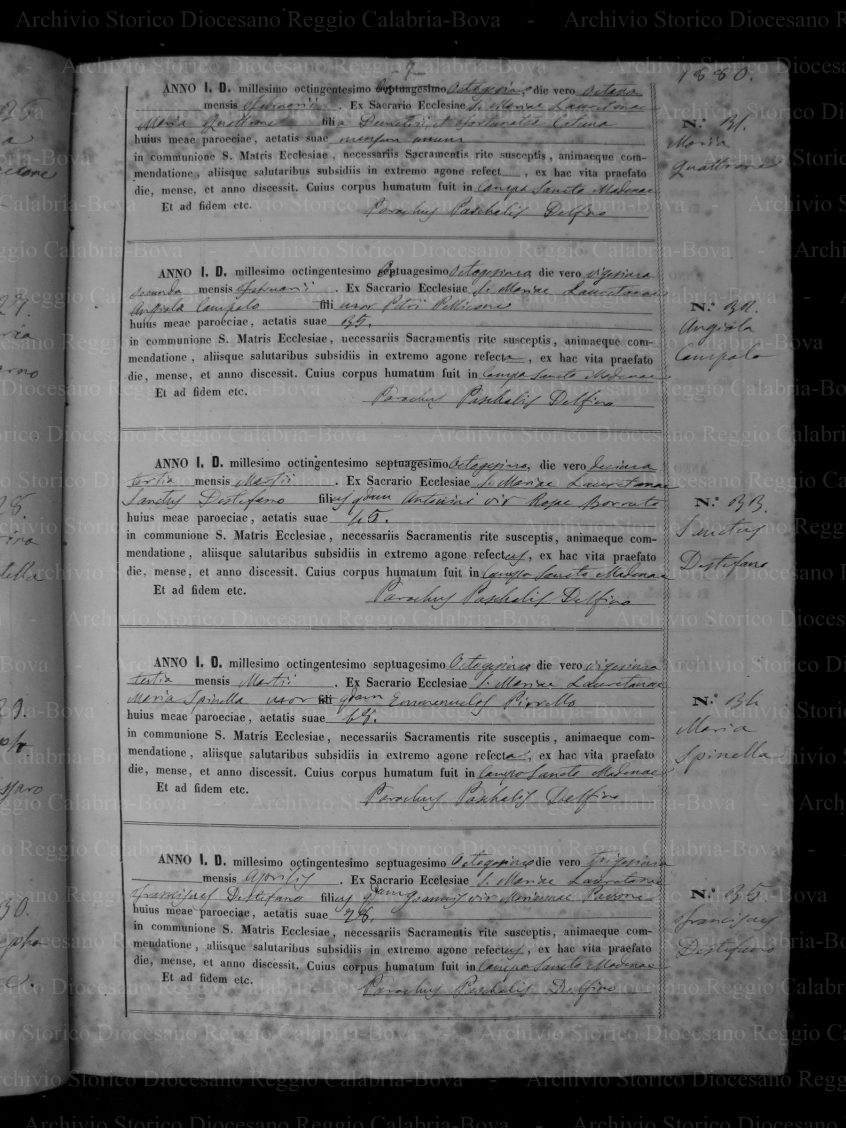 7
1880.
ANNO I. D. millesimo octingentesimo septuagesimo Octogesimo, die vero octava
mensis Februarii. Ex Sacrario Ecclesiae S. Mariae Lauretanae
Maria Quattrone filia Demetrii et Fortunatae
huius meae paroeciae, aetatis suae mensium
in communione S. Matris Ecclesiae, necessariis Sacramentis rite susceptis, animaeque com-
mendatione, aliisque salutaribus subsidiis in extremo agone refect , ex hac vita praefato
die, mense, et anno discessit. Cuius corpus humatum fuit in Campo Sancto Modenae
Et ad fidem etc.
Parochus Paschalis Delfino
N.° 31.
Maria
Quattrone
ANNO I. D. millesimo octingentesimo septuagesimo Octogesimo die vero vigesima
secunda mensis Februarii. Ex Sacrario Ecclesiae S. Mariae Lauretanae
Angiola Campolo fili uxor Petri Pellicone
huius meae paroeciae, aetatis suae 35.
in communione S. Matris Ecclesiae, necessariis Sacramentis rite susceptis, animaeque com-
mendatione, aliisque salutaribus subsidiis in extremo agone refecta, ex hac vita praefato
die, mense, et anno discessit. Cuius corpus humatum fuit in Campo Sancto Modenae
Et ad fidem etc.
Parochus Paschalis Delfino
N.° 32.
Angiola
Campolo
ANNO I. D. millesimo octingentesimo septuagesimo Octogesimo, die vero decima
tertia mensis Martii. Ex Sacrario Ecclesiae S. Mariae Lauretanae
Sanctus Distefano filius qdam Antonini vir Rosae Borruto
huius meae paroeciae, aetatis suae 45.
in communione S. Matris Ecclesiae, necessariis Sacramentis rite susceptis, animaeque com-
mendatione, aliisque salutaribus subsidiis in extremo agone refectus, ex hac vita praefato
die, mense, et anno discessit. Cuius corpus humatum fuit in Campo Sancto Modenae
Et ad fidem etc.
Parochus Paschalis Delfino
N.° 33.
Sanctus
Distefano
ANNO I. D. millesimo octingentesimo septuagesimo Octogesimo die vero vigesima
tertia mensis Martii. Ex Sacrario Ecclesiae S. Mariae Lauretanae
Maria Spinella uxor fili qdam Emmanuelis
huius meae paroeciae, aetatis suae 65.
in communione S. Matris Ecclesiae, necessariis Sacramentis rite susceptis, animaeque com-
mendatione, aliisque salutaribus subsidiis in extremo agone refecta, ex hac vita praefato
die, mense, et anno discessit. Cuius corpus humatum fuit in Campo Sancto Modenae
Et ad fidem etc.
Parochus Paschalis Delfino
N.° 34
Maria
Spinella
ANNO I. D. millesimo octingentesimo septuagesimo Octogesimo die vero trigesima
mensis Aprilis. Ex Sacrario Ecclesiae S. Mariae Lauretanae
Franciscus Distefano filius qdam Joannis vir Marianae Pavone
huius meae paroeciae, aetatis suae 28.
in communione S. Matris Ecclesiae, necessariis Sacramentis rite susceptis, animaeque com-
mendatione, aliisque salutaribus subsidiis in extremo agone refectus, ex hac vita praefato
die, mense, et anno discessit. Cuius corpus humatum fuit in Campo Sancto Modenae
Et ad fidem etc.
Parochus Paschalis Delfino
N.° 35
Franciscus
Distefano
Archivio Storico Diocesano Reggio Calabria-Bova